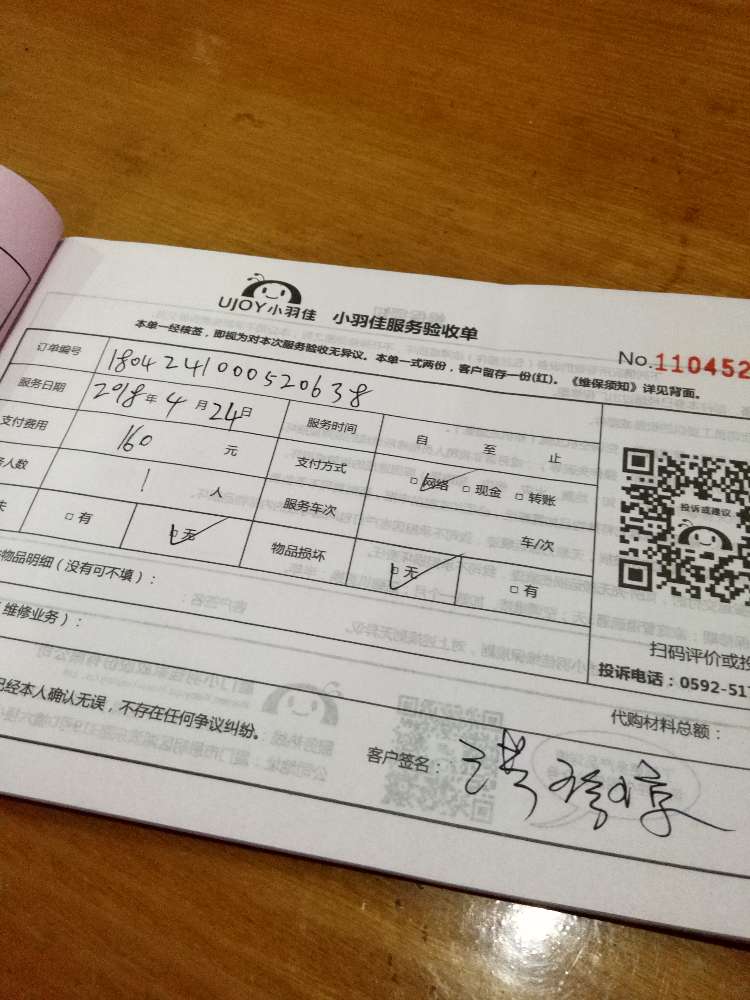 UJOY小羽佳 小羽佳服务验收单
No.110452
本单一经核签，即视为对本次服务验收无异议。本单一式两份，客户留存一份(红)。《维保须知》详见背面。
订单编号 1804241000520638
服务日期 2018年4月24日 服务时间 自 至 止
支付费用 160 元 支付方式 □网络 □现金 □转账
人数 1 人 服务车次 车/次
□有 □无 物品损坏 □无 □有
物品明细（没有可不填）：
维修业务）：
投诉或建议
扫码评价或投
投诉电话：0592-517
代购材料总额：
已经本人确认无误，不存在任何争议纠纷。
客户签名：